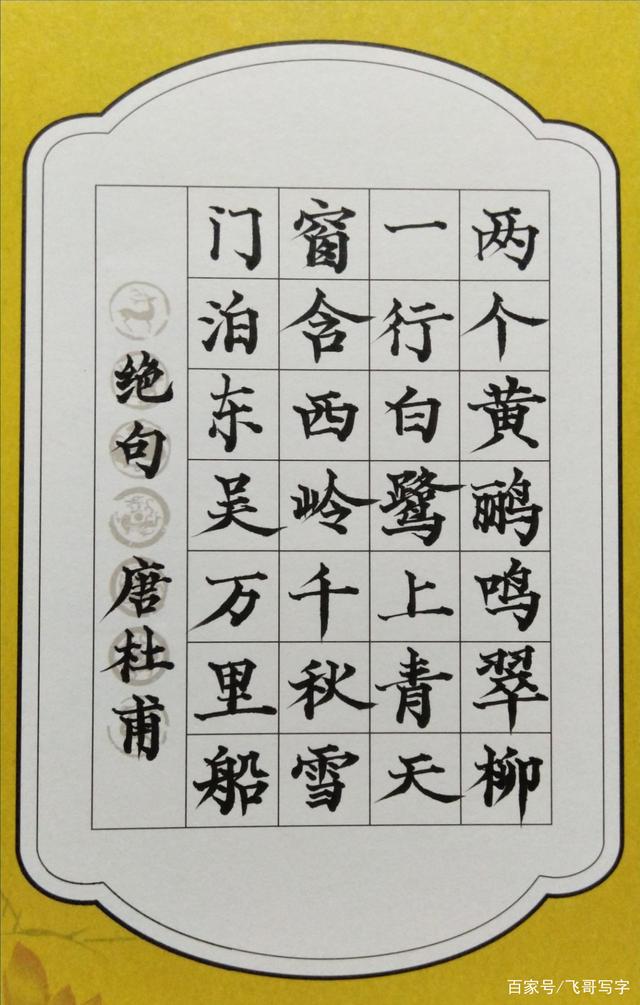 两个黄鹂鸣翠柳
一行白鹭上青天
窗含西岭千秋雪
门泊东吴万里船
绝句
唐杜甫
百家号/飞哥写字